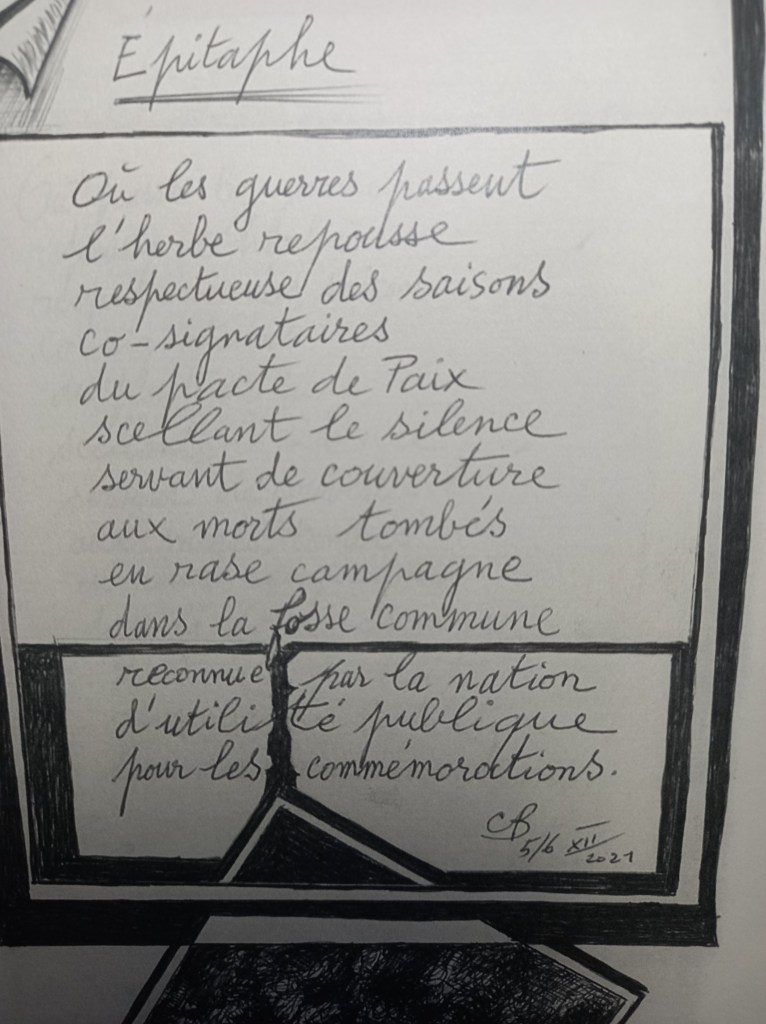 Épitaphe
Où les guerres passent
l'herbe repousse
respectueuse des saisons
co-signataires
du pacte de Paix
scellant le silence
servant de couverture
aux morts tombés
en rase campagne
dans la fosse commune
reconnue par la nation
d'utilité publique
pour les commémorations.
CB
5/6 XII
2021